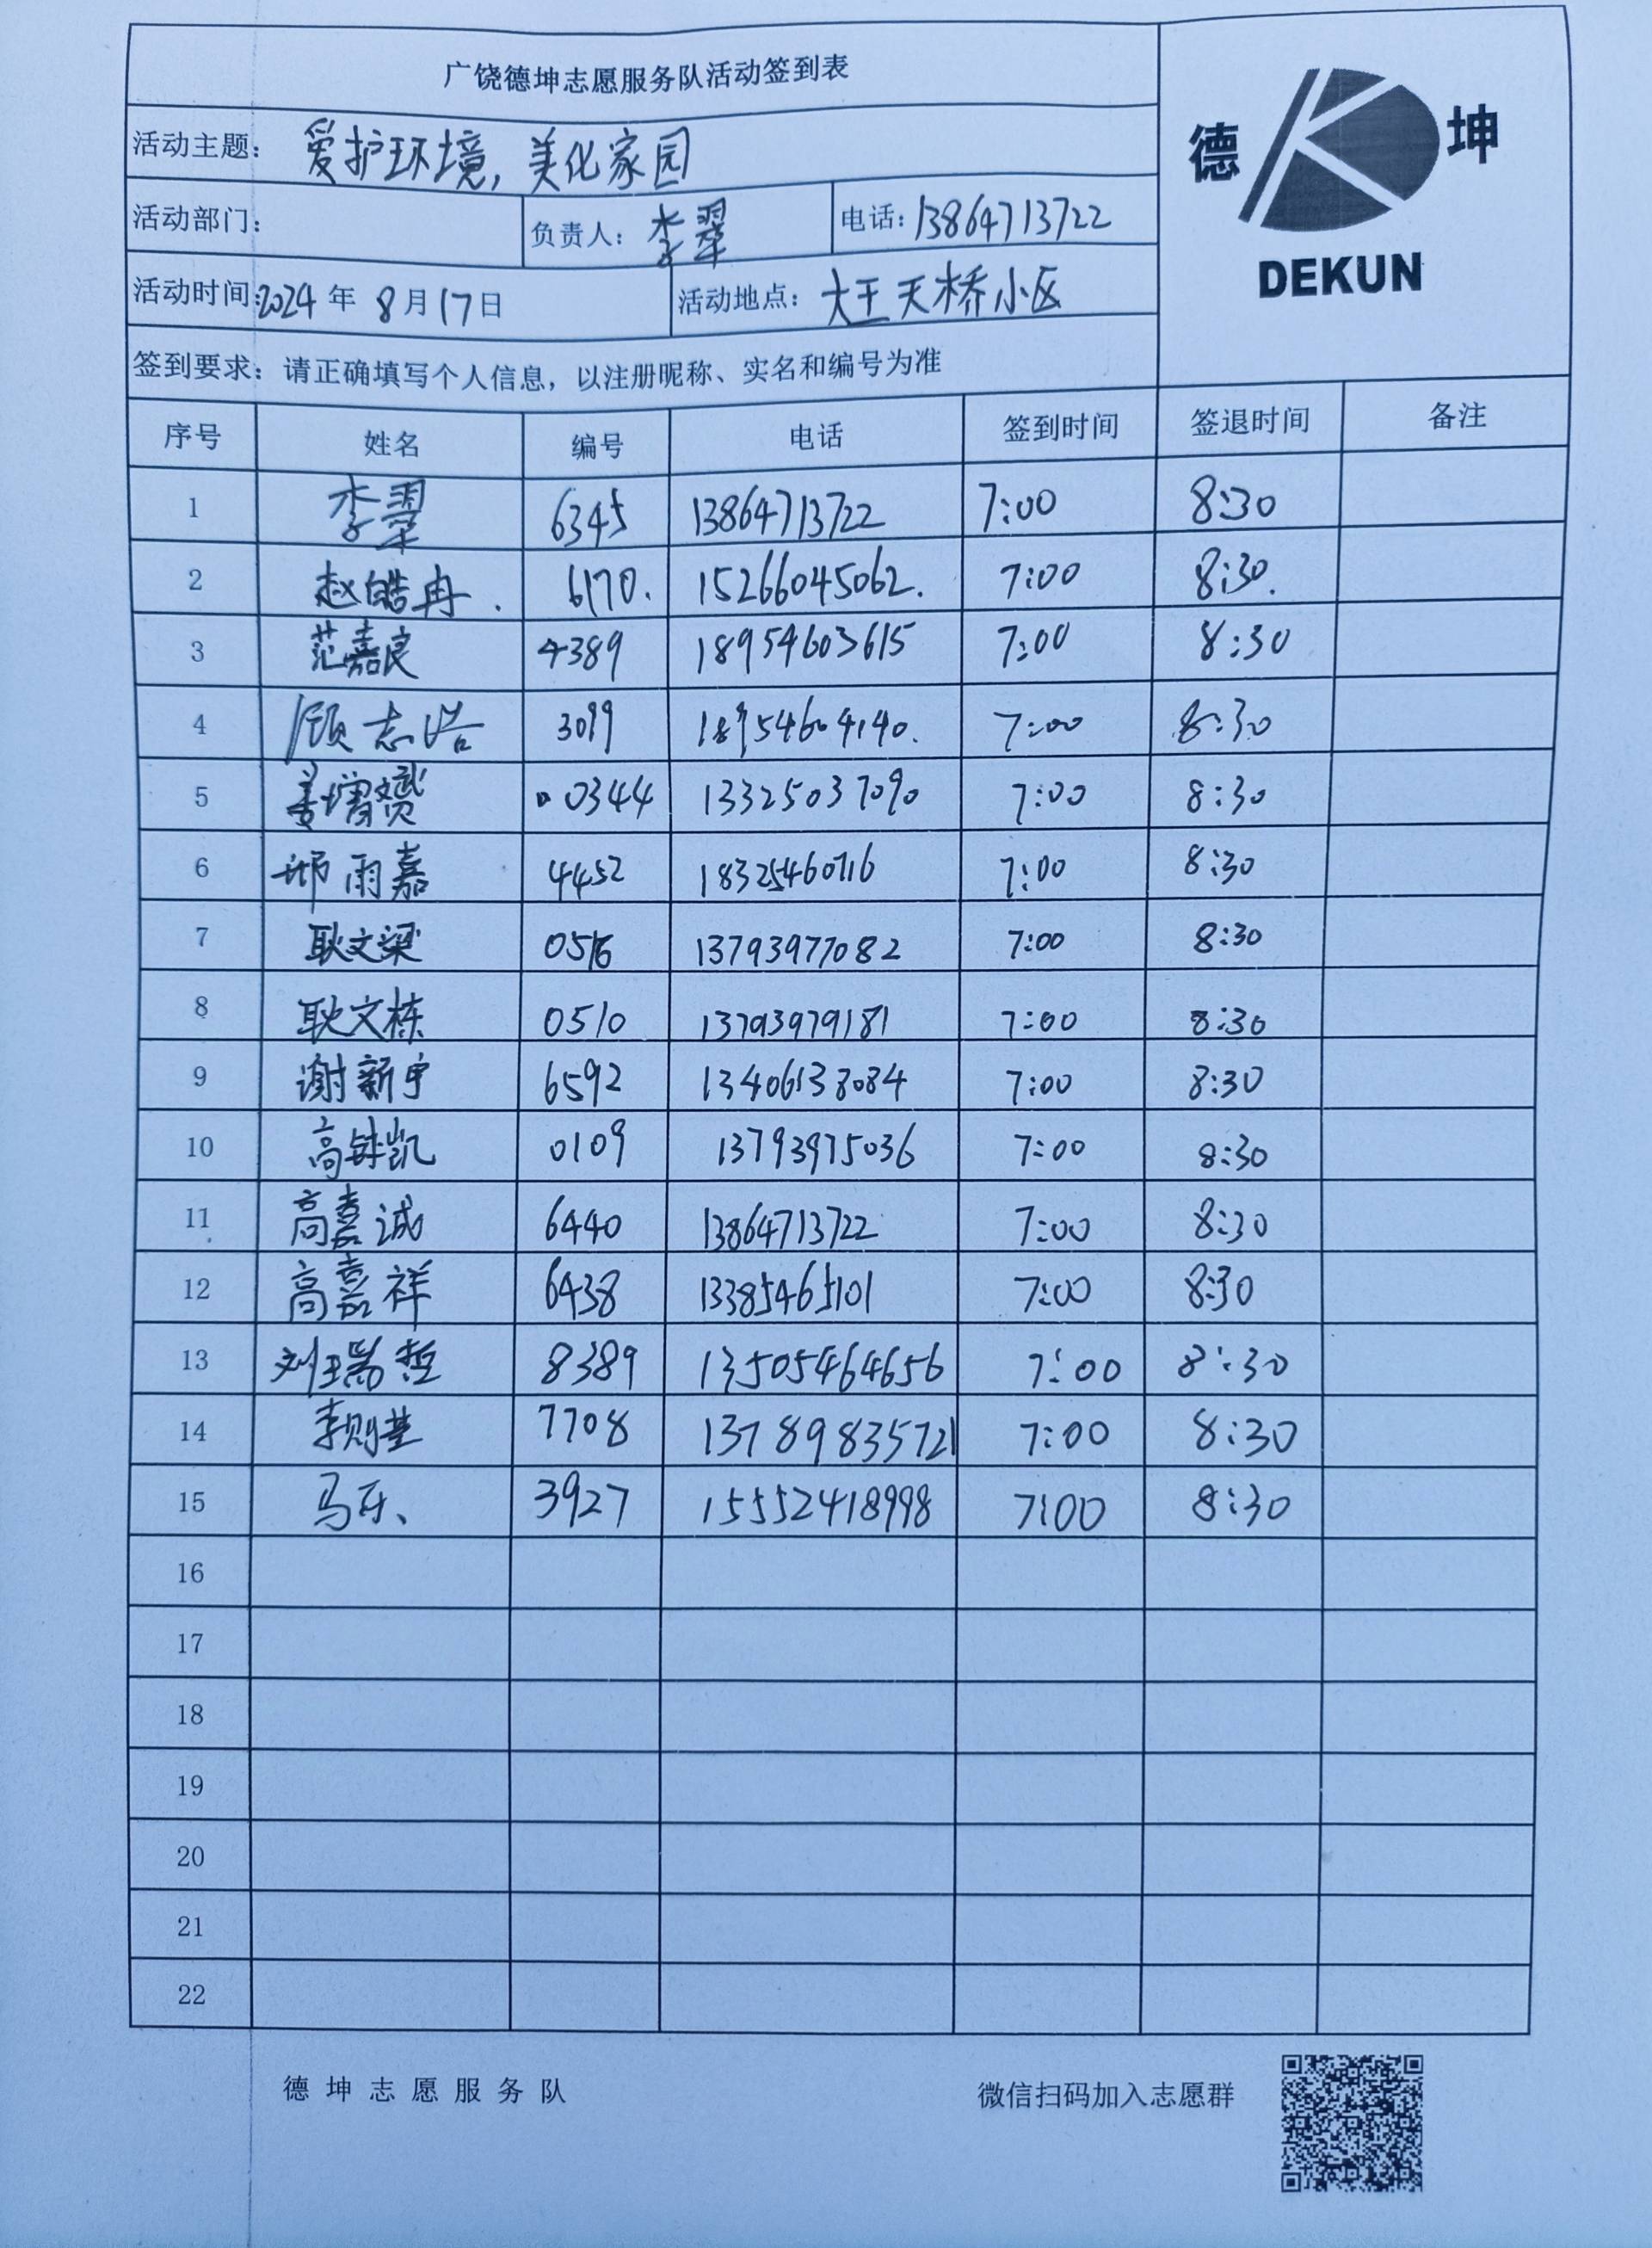 广饶德坤志愿服务队活动签到表
德 坤
DEKUN
活动主题：爱护环境，美化家园
活动部门： 负责人：李翠 电话：13864713722
活动时间：2024年 8月17日 活动地点：大王天桥小区
签到要求：请正确填写个人信息，以注册昵称、实名和编号为准
序号 姓名 编号 电话 签到时间 签退时间 备注
1 李翠 6345 13864713722 7:00 8:30
2 赵皓冉. 6170. 15266045062. 7:00 8:30.
3 范嘉良 4389 18954603615 7:00 8:30
4 顾志浩 3099 18954604140. 7:00 8:30
5 姜增赟 0344 13325037090 7:00 8:30
6 邢雨嘉 4452 18325460716 7:00 8:30
7 耿文梁 0516 13793977082 7:00 8:30
8 耿文栋 0510 13793979181 7:00 8:30
9 谢新宇 6592 13406138084 7:00 8:30
10 高铢凯 0109 13793975036 7:00 8:30
11 高嘉诚 6440 13864713722 7:00 8:30
12 高嘉祥 6438 13385465101 7:00 8:30
13 刘瑞哲 8389 13505464656 7:00 8:30
14 李则基 7708 13789835721 7:00 8:30
15 马乐、 3927 15552418998 7:00 8:30
16
17
18
19
20
21
22
德坤志愿服务队 微信扫码加入志愿群